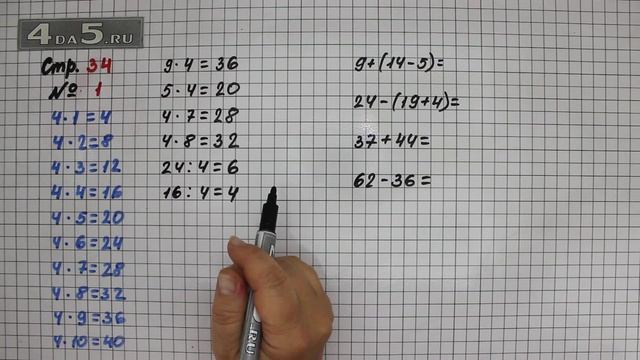 4DA5.RU
Стр. 34
№ 1
4·1=4
4·2=8
4·3=12
4·4=16
4·5=20
4·6=24
4·7=28
4·8=32
4·9=36
4·10=40
9·4=36
5·4=20
4·7=28
4·8=32
24:4=6
16:4=4
9+(14-5)=
24-(19+4)=
37+44=
62-36=